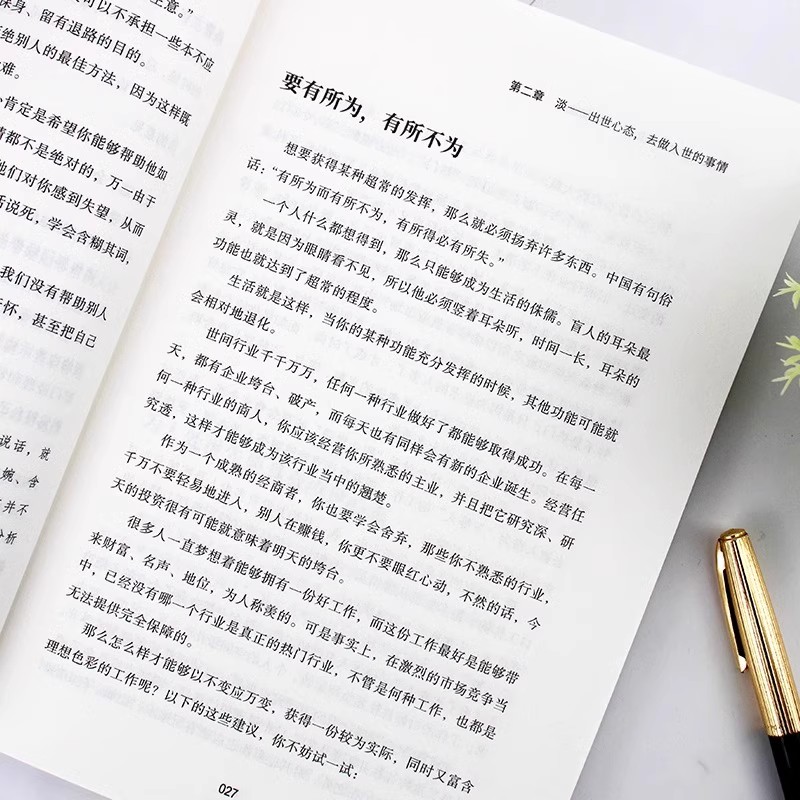 生意。”
可以不承担一些本不应
保身、留有退路的目的。
绝别人的最佳方法，因为这样既
难。
肯定是希望你能够帮助他如
情都不是绝对的，万一由于
他们对你感到失望，从而
话说死，学会含糊其词，
我们没有帮助别人
怀，甚至把自己
说话，就
婉、含
并不
分析
第二章　淡——出世心态，去做入世的事情
要有所为，有所不为
想要获得某种超常的发挥，那么就必须扬弃许多东西。中国有句俗
话：“有所为而有所不为，有所得必有所失。”
一个人什么都想得到，那么只能够成为生活的侏儒。盲人的耳朵最
灵，就是因为眼睛看不见，所以他必须竖着耳朵听，时间一长，耳朵的
功能也就达到了超常的程度。
生活就是这样，当你的某种功能充分发挥的时候，其他功能可能就
会相对地退化。
世间行业千千万万，任何一种行业做好了都能够取得成功。在每一
天，都有企业垮台、破产，而每天也有同样会有新的企业诞生。经营任
何一种行业的商人，你应该经营你所熟悉的主业，并且把它研究深、研
究透，这样才能够成为该行业当中的翘楚。
作为一个成熟的经商者，你也要学会舍弃，那些你不熟悉的行业，
千万不要轻易地进入，别人在赚钱，你更不要眼红心动，不然的话，今
天的投资很有可能就意味着明天的垮台。
很多人一直梦想着能够拥有一份好工作，而这份工作最好是能够带
来财富、名声、地位，为人称羡的。可是事实上，在激烈的市场竞争当
中，已经没有哪一个行业是真正的热门行业，不管是何种工作，也都是
无法提供完全保障的。
那么怎么样才能够以不变应万变，获得一份较为实际，同时又富含
理想色彩的工作呢？以下的这些建议，你不妨试一试：
027